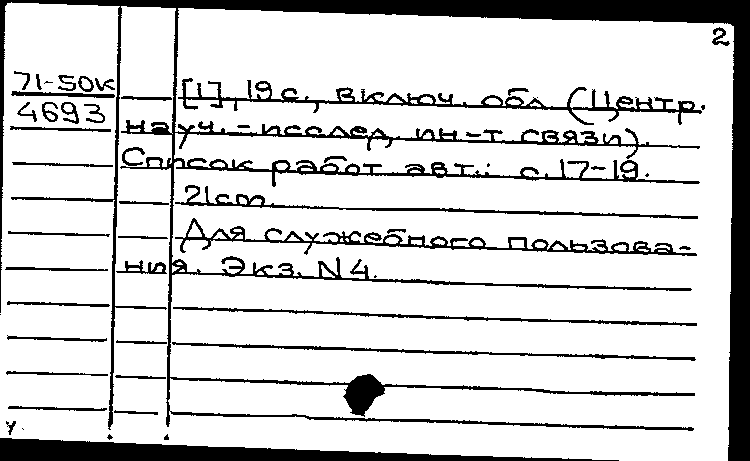 2
71-50к
4693
[1], 19 с., включ. обл (Центр.
науч.-исслед, ин-т связи).
Список работ авт.: с. 17-19.
21cm.
Для служебного пользова-
ния. Экз. N 4.
у.